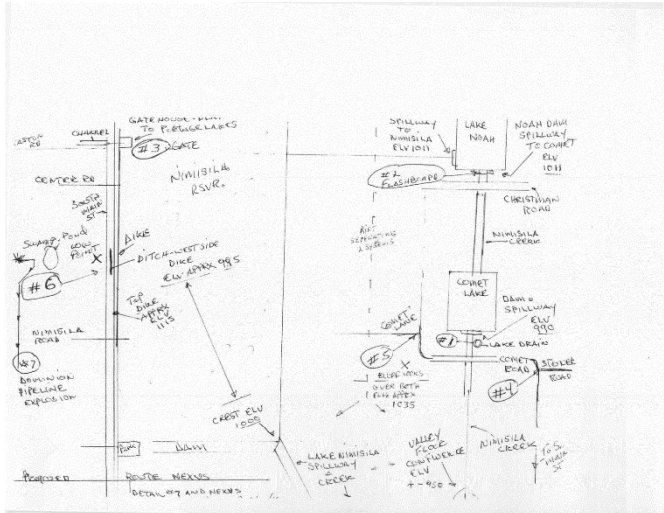 GATEHOUSE
TO PORTAGE LAKES
CHANNEL
#3 GATE
CENTER RD
SOUTH
MAIN
ST
NIMISILA
RSVR.
SWAMP
POND
LOW
POINT
X
DIKE
DITCH-WEST SIDE
DIKE
ELV APPRX 985
#6
TOP
DIKE
APPRX
ELV
1115
NIMISILA
ROAD
#7
DOMINION
PIPELINE
EXPLOSION
CREST ELV
1000
PARK
DAM
PROPOSED ROUTE NEXUS
DETAIL #7 AND NEXUS
SPILLWAY
TO
NIMISILA
ELV 1011
LAKE
NOAH
NOAH DAM
SPILLWAY
TO COMET
ELV
1011
#2
FLASHBOARD
CHRISTMAN
ROAD
SEPARATING
2 SYSTEMS
NIMISILA
CREEK
COMET
LAKE
DAM &
SPILLWAY
ELV
990
#1 LAKE DRAIN
COMET
LANE
#5
COMET
ROAD
STONER
ROAD
#4
X
BLUFF LOOKS
OVER BOTH
APPX
1035
LAKE NIMISILA
SPILLWAY
CREEK
VALLEY
FLOOR
CONFLUENCE
ELV
+-950
NIMISILA
CREEK
TO S.
MAIN
ST